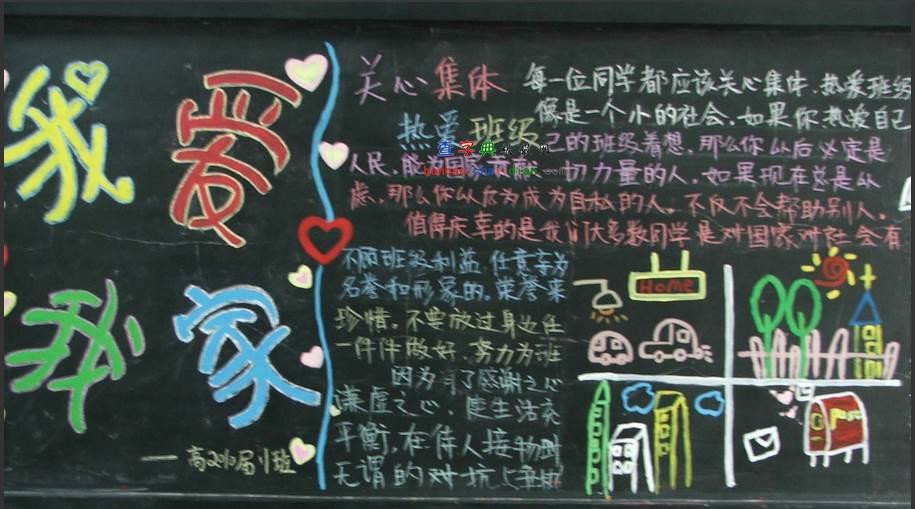 我爱
我家
关心集体
热爱班级
每一位同学都应该关心集体、热爱班级
像是一个小的社会、如果你热爱自己
己的班级着想，那么你以后必定是
人民，能为国家 一切力量的人。如果现在总是从
虑，那么你以后为成为自私的人。不仅不会帮助别人，
值得庆幸的是我们大多数同学是对国家对社会有
不顾班级利益，任意妄为
名誉和形象的。荣誉来
珍惜。不要放过身边任
一件件做好，努力为班
因为有了感谢之心
谦虚之心，使生活充
平衡，在待人接物时
无谓的对抗上
查字典
Home
Post